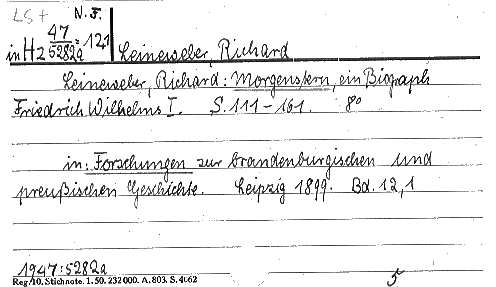 LS+ N.F.
in Hz 47/5282a : 12,1 Leineweber, Richard
Leineweber, Richard: Morgenstern, ein Biograph
Friedrich Wilhelms I. S. 111-161. 8°
in: Forschungen zur brandenburgischen und
preußischen Geschichte. Leipzig 1899. Bd. 12,1
1947:5282a
Reg/10. Stichnote. 1. 50. 232000. A. 803. S. 4062
5